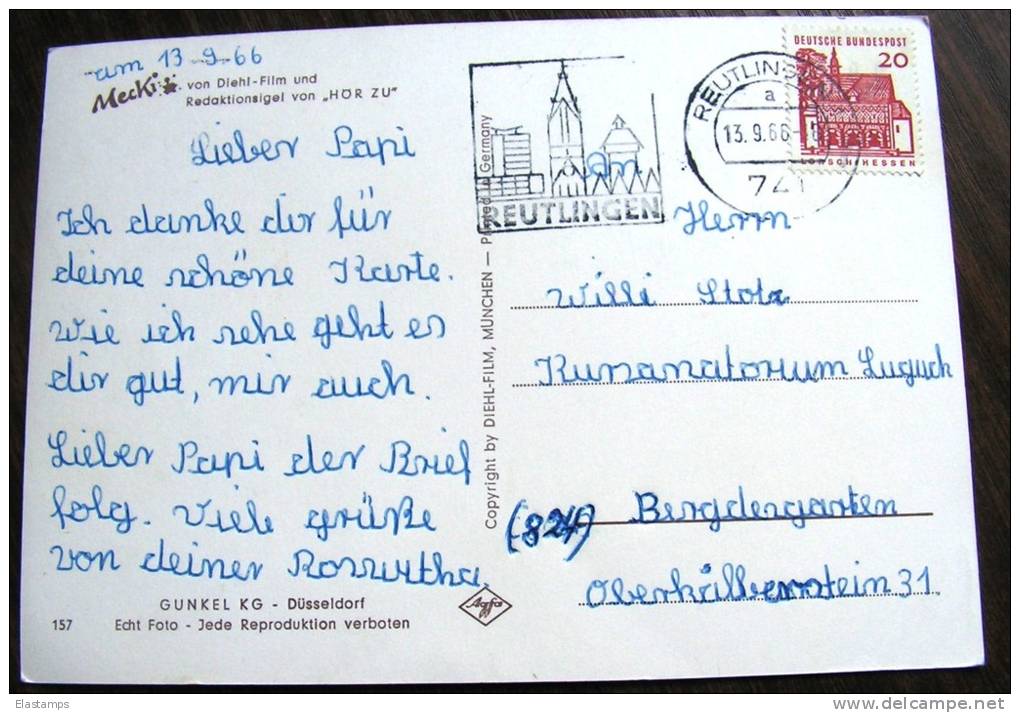 am 13-9-66
Mecki von Diehl-Film und
Redaktionsigel von „HÖR ZU"
Lieber Papi
Ich danke dir für
deine schöne Karte.
Wie ich sehe geht es
dir gut, mir auch.
Lieber Papi der Brief
folg. Viele grüße
von deiner
GUNKEL KG - Düsseldorf
157 Echt Foto - Jede Reproduktion verboten
Agfa
Copyright by DIEHL-FILM, MÜNCHEN — Printed in Germany
REUTLINGEN
REUTLINGEN
a
13.9.66
741
DEUTSCHE BUNDESPOST
20
LORSCH/HESSEN
an
Herrn
Willi Stolz
Kursanatorium
(824) Bergdergarten
31
Elastamps
http://www.delcampe.net